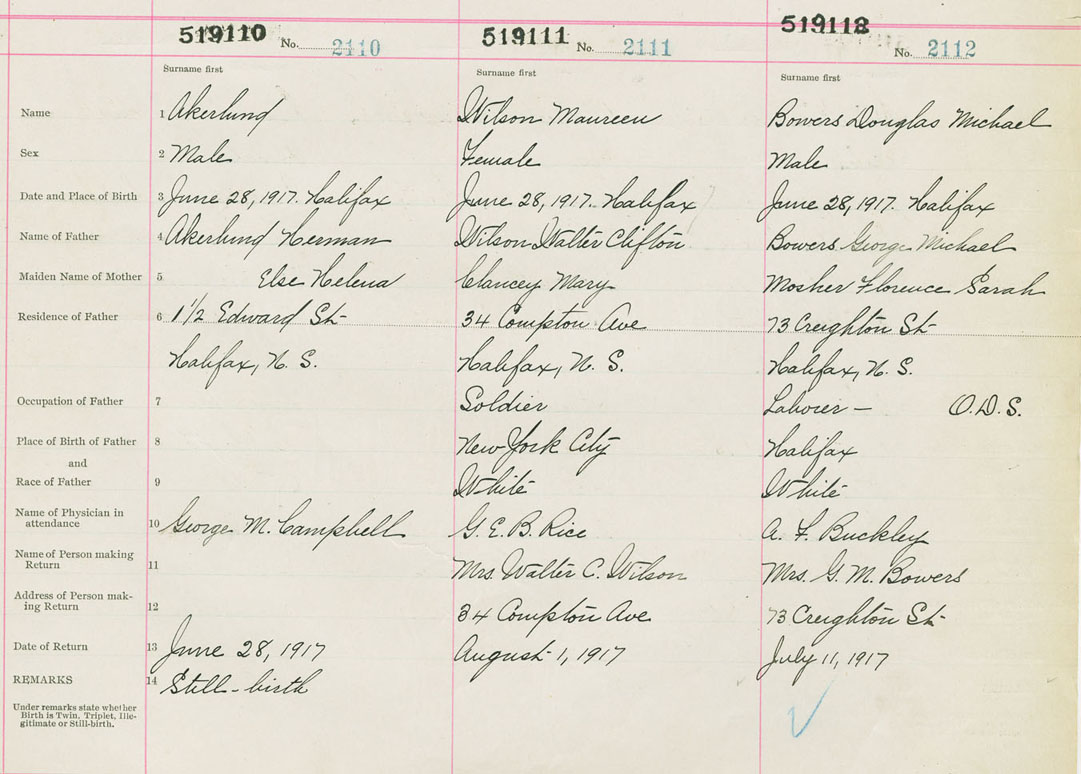 519110 No. 2110 519111 No. 2111 519112 No. 2112
Surname first Surname first Surname first
Name 1 Akerlund Wilson Maureen Bowers Douglas Michael
Sex 2 Male Female Male
Date and Place of Birth 3 June 28, 1917. Halifax June 28, 1917. Halifax June 28, 1917. Halifax
Name of Father 4 Akerlund Herman Wilson Walter Clifton Bowers George Michael
Maiden Name of Mother 5 Else Helena Clancey Mary Mosher Florence Sarah
Residence of Father 6 1 1/2 Edward St 34 Compton Ave 73 Creighton St
Halifax, N. S. Halifax, N. S. Halifax, N. S.
Occupation of Father 7 Soldier Laborer – O.D.S.
Place of Birth of Father 8 New York City Halifax
and
Race of Father 9 White White
Name of Physician in
attendance 10 George M. Campbell G. E. B. Rice A. F. Buckley
Name of Person making
Return 11 Mrs. Walter C. Wilson Mrs. G. M. Bowers
Address of Person mak-
ing Return 12 34 Compton Ave. 73 Creighton St
Date of Return 13 June 28, 1917 August 1, 1917 July 11, 1917
REMARKS 14 Still-birth
Under remarks state whether
Birth is Twin, Triplet, Ille-
gitimate or Still-birth.